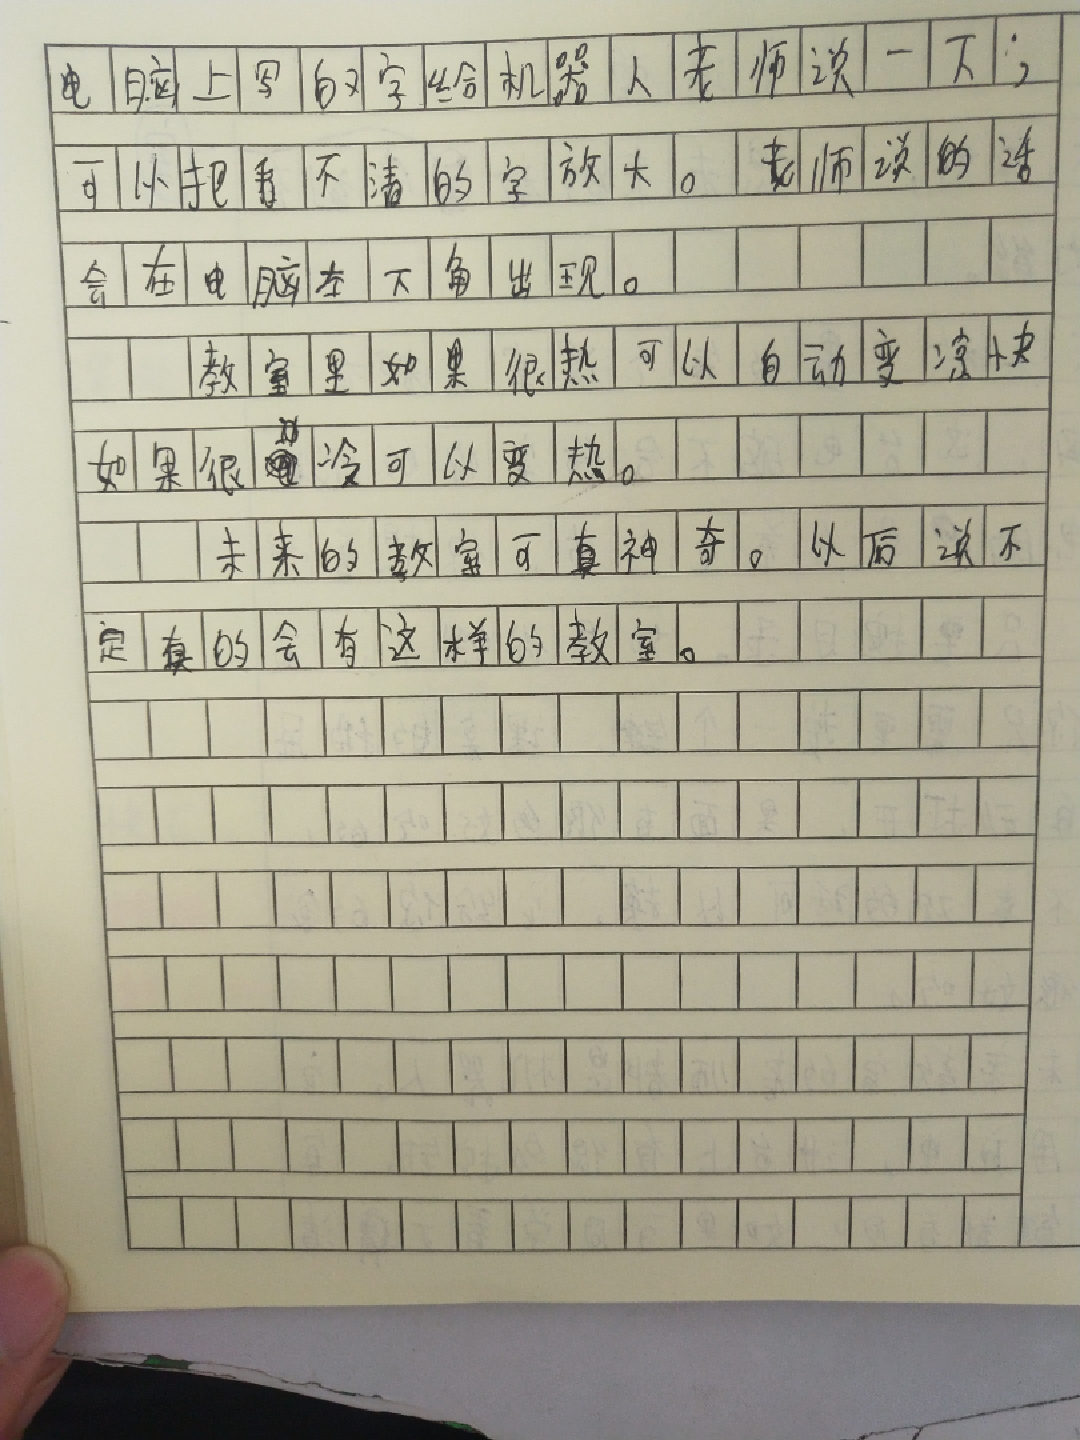 电脑上写的字给机器人老师说一下；
可以把看不清的字放大。老师说的话
会在电脑左下角出现。
教室里如果很热可以自动变凉快
如果很冷可以变热。
未来的教室可真神奇。以后说不
定真的会有这样的教室。